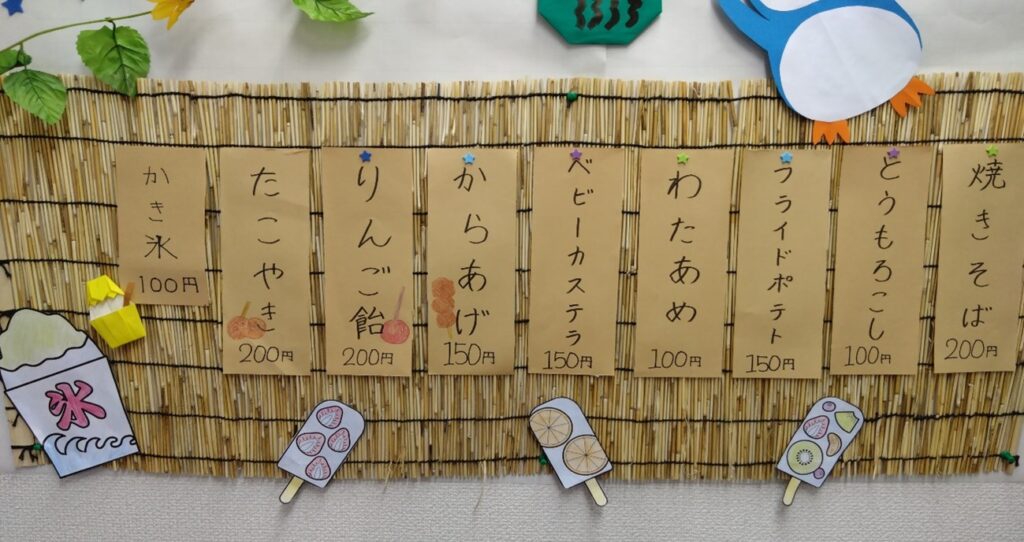 焼きそば
200円
とうもろこし
100円
フライドポテト
150円
わたあめ
100円
ベビーカステラ
150円
からあげ
150円
りんご飴
200円
たこやき
200円
かき氷
100円
氷